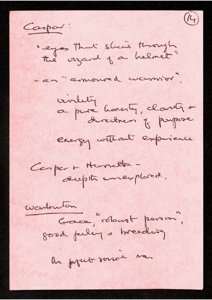 14
Caspar:
"eyes that shine through
the vizard of a helmet"
- an "armoured warrior".
virility
a pure honesty, clarity &
directness of purpose
energy without experience
Caspar + Henrietta -
depths unexplored.
Warburton
Grace, "robust person",
good feeling & breeding